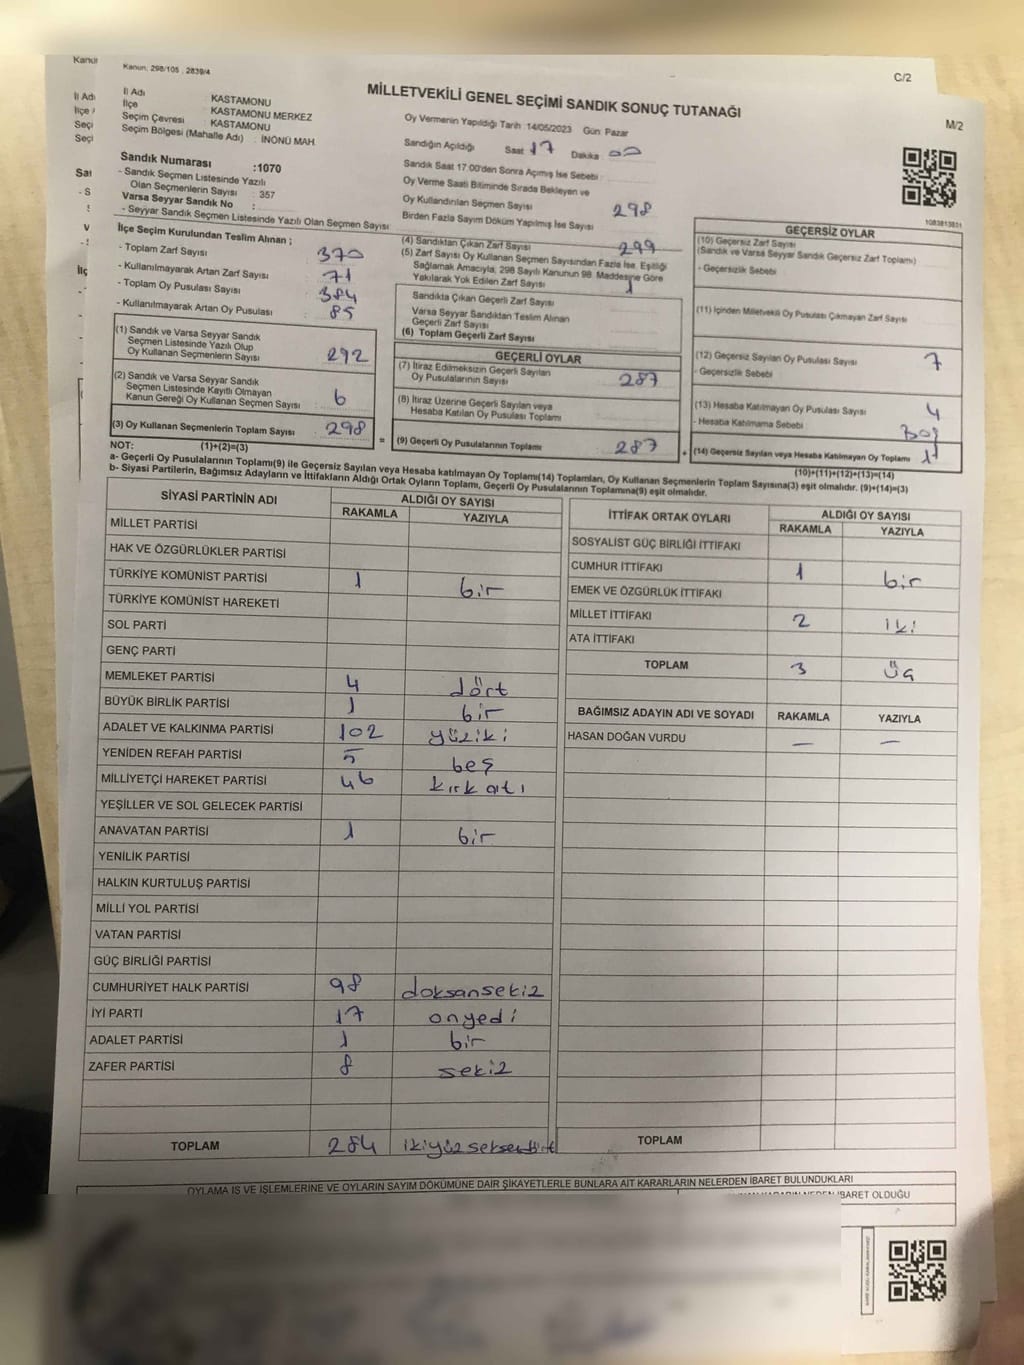 Kanun, 298/105 , 2839/4
C/2
MİLLETVEKİLİ GENEL SEÇİMİ SANDIK SONUÇ TUTANAĞI
M/2
İl Adı : KASTAMONU
İlçe : KASTAMONU MERKEZ
Seçim Çevresi : KASTAMONU
Seçim Bölgesi (Mahalle Adı) : İNÖNÜ MAH.
Oy Vermenin Yapıldığı Tarih :14/05/2023 Gün: Pazar
Sandığın Açıldığı Saat 17 Dakika 00
Sandık Saat 17:00'den Sonra Açımış İse Sebebi :
Oy Verme Saati Bitiminde Sırada Bekleyen ve
Oy Kullandırılan Seçmen Sayısı 298
Birden Fazla Sayım Döküm Yapılmış İse Sayısı
Sandık Numarası :1070
- Sandık Seçmen Listesinde Yazılı
Olan Seçmenlerin Sayısı : 357
Varsa Seyyar Sandık No :
- Seyyar Sandık Seçmen Listesinde Yazılı Olan Seçmen Sayısı
İlçe Seçim Kurulundan Teslim Alınan ;
- Toplam Zarf Sayısı : 370
- Kullanılmayarak Artan Zarf Sayısı : 71
- Toplam Oy Pusulası Sayısı : 384
- Kullanılmayarak Artan Oy Pusulası : 85
(1) Sandık ve Varsa Seyyar Sandık
Seçmen Listesinde Yazılı Olup
Oy Kullanan Seçmenlerin Sayısı 292
(2) Sandık ve Varsa Seyyar Sandık
Seçmen Listesinde Kayıtlı Olmayan
Kanun Gereği Oy Kullanan Seçmen Sayısı 6
(3) Oy Kullanan Seçmenlerin Toplam Sayısı 298
(4) Sandıktan Çıkan Zarf Sayısı 299
(5) Zarf Sayısı Oy Kullanan Seçmen Sayısından Fazla İse, Eşitliği
Sağlamak Amacıyla, 298 Sayılı Kanunun 98. Maddesine Göre
Yakılarak Yok Edilen Zarf Sayısı 1
Sandıkta Çıkan Geçerli Zarf Sayısı
Varsa Seyyar Sandıktan Teslim Alınan
Geçerli Zarf Sayısı
(6) Toplam Geçerli Zarf Sayısı
GEÇERLİ OYLAR
(7) İtiraz Edilmeksizin Geçerli Sayılan
Oy Pusulalarının Sayısı 287
(8) İtiraz Üzerine Geçerli Sayılan veya
Hesaba Katılan Oy Pusulası Toplamı
= (9) Geçerli Oy Pusulalarının Toplamı 287 +
1083813831
GEÇERSİZ OYLAR
(10) Geçersiz Zarf Sayısı
(Sandık ve Varsa Seyyar Sandık Geçersiz Zarf Toplamı)
- Geçersizlik Sebebi
(11) İçinden Milletvekili Oy Pusulası Çıkmayan Zarf Sayısı
(12) Geçersiz Sayılan Oy Pusulası Sayısı 7
- Geçersizlik Sebebi
(13) Hesaba Katılmayan Oy Pusulası Sayısı 4
- Hesaba Katılmama Sebebi Boş
(14) Geçersiz Sayılan veya Hesaba Katılmayan Oy Toplamı
(10)+(11)+(12)+(13)=(14)
NOT: (1)+(2)=(3)
a- Geçerli Oy Pusulalarının Toplamı(9) ile Geçersiz Sayılan veya Hesaba katılmayan Oy Toplamı(14) Toplamları, Oy Kullanan Seçmenlerin Toplam Sayısına(3) eşit olmalıdır. (9)+(14)=(3)
b- Siyasi Partilerin, Bağımsız Adayların ve İttifakların Aldığı Ortak Oyların Toplamı, Geçerli Oy Pusulalarının Toplamına(9) eşit olmalıdır.
SİYASİ PARTİNİN ADI ALDIĞI OY SAYISI
RAKAMLA YAZIYLA
MİLLET PARTİSİ
HAK VE ÖZGÜRLÜKLER PARTİSİ
TÜRKİYE KOMÜNİST PARTİSİ 1 bir
TÜRKİYE KOMÜNİST HAREKETİ
SOL PARTİ
GENÇ PARTİ
MEMLEKET PARTİSİ 4 dört
BÜYÜK BİRLİK PARTİSİ 1 bir
ADALET VE KALKINMA PARTİSİ 102 yüziki
YENİDEN REFAH PARTİSİ 5 beş
MİLLİYETÇİ HAREKET PARTİSİ 46 kırkaltı
YEŞİLLER VE SOL GELECEK PARTİSİ
ANAVATAN PARTİSİ 1 bir
YENİLİK PARTİSİ
HALKIN KURTULUŞ PARTİSİ
MİLLİ YOL PARTİSİ
VATAN PARTİSİ
GÜÇ BİRLİĞİ PARTİSİ
CUMHURİYET HALK PARTİSİ 98 doksansekiz
İYİ PARTİ 17 onyedi
ADALET PARTİSİ 1 bir
ZAFER PARTİSİ 8 sekiz
TOPLAM 284
İTTİFAK ORTAK OYLARI ALDIĞI OY SAYISI
RAKAMLA YAZIYLA
SOSYALİST GÜÇ BİRLİĞİ İTTİFAKI
CUMHUR İTTİFAKI 1 bir
EMEK VE ÖZGÜRLÜK İTTİFAKI
MİLLET İTTİFAKI 2 iki
ATA İTTİFAKI
TOPLAM 3 üç
BAĞIMSIZ ADAYIN ADI VE SOYADI RAKAMLA YAZIYLA
HASAN DOĞAN VURDU — —
TOPLAM
OYLAMA İŞ VE İŞLEMLERİNE VE OYLARIN SAYIM DÖKÜMÜNE DAİR ŞİKAYETLERLE BUNLARA AİT KARARLARIN NELERDEN İBARET BULUNDUKLARI
İBARET OLDUĞU